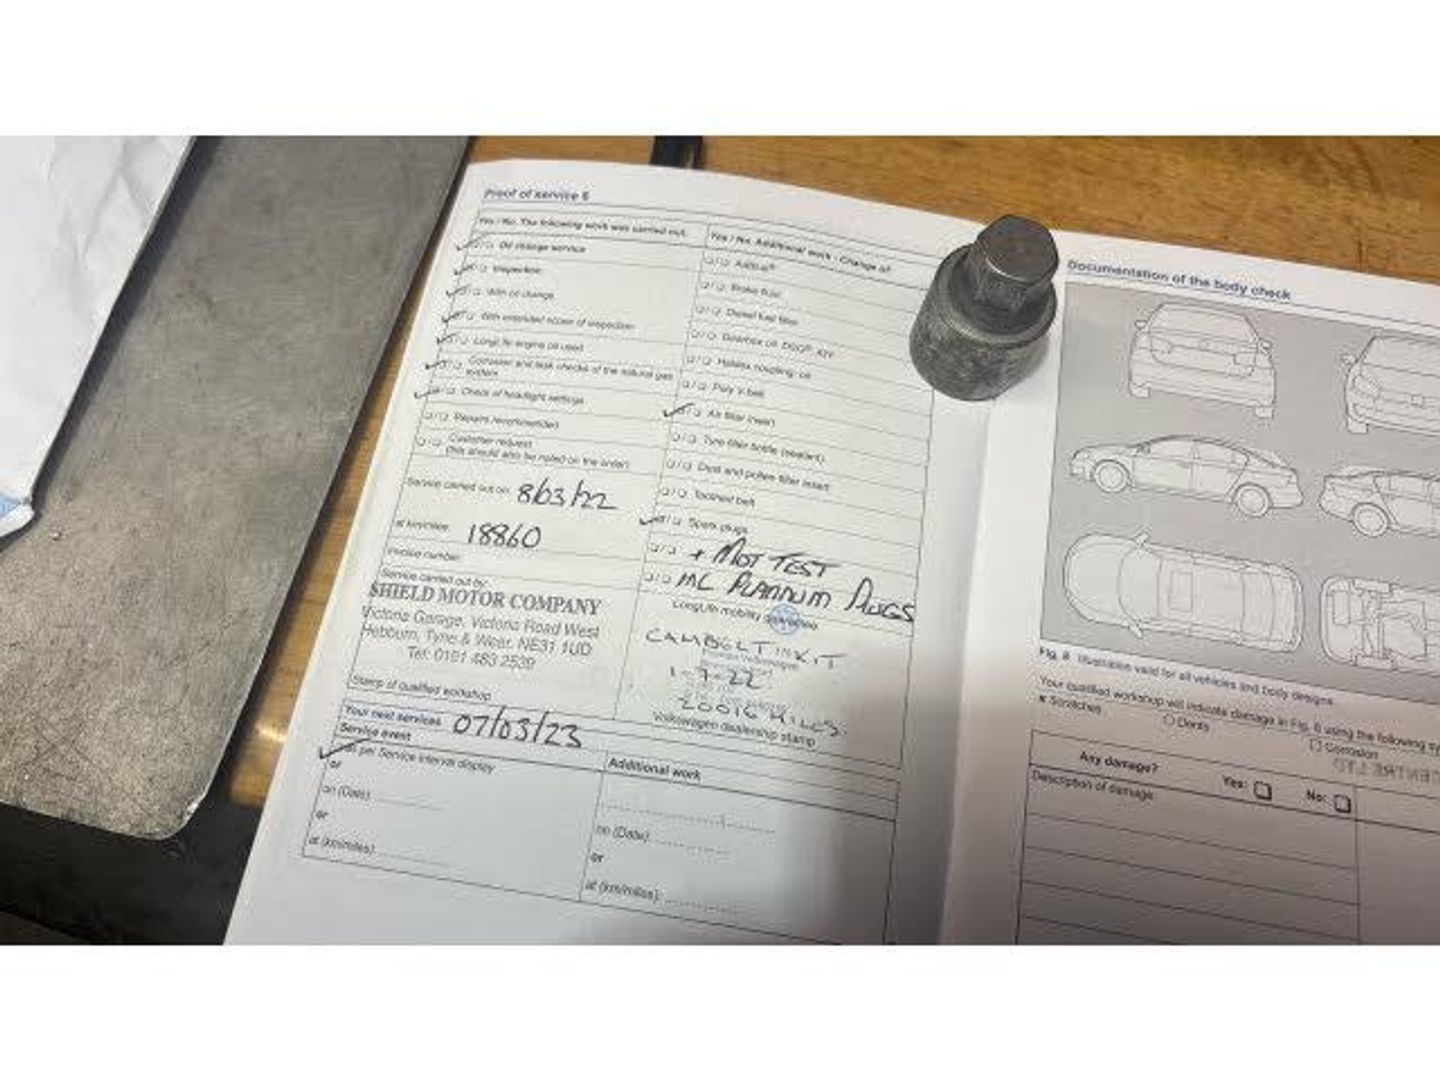 Proof of service 6
Yes / No. The following work was carried out.
Oil change service
Inspection:
With oil change
With extended scope of inspection
LongLife engine oil used
Corrosion and leak checks of the natural gas
system
Check of headlight settings
Repairs recommended
Customer request
(this should also be noted on the order)
Service carried out on: 8/03/22
at km/miles: 18860
Invoice number:
Service carried out by:
SHIELD MOTOR COMPANY
Victoria Garage, Victoria Road West
Hebburn, Tyne & Wear. NE31 1UD
Tel: 0191 483 2539
Stamp of qualified workshop
Yes / No. Additional work - Change of
Brake fluid
Diesel fuel filter
Gearbox oil DSG®, ATF
Haldex coupling: oil
Poly V-belt
Air filter insert
Tyre filler bottle (sealant)
Dust and pollen filter insert
Toothed belt
Spark plugs
+ MOT TEST
PLATINUM PLUGS
LongLife mobility guarantee
CAMBELT KIT
1-7-22
20016 MILES.
Volkswagen dealership stamp
Your next services 07/03/23
Service event
as per Service interval display
or
on (Date):
or
at (km/miles):
Additional work
on (Date):
or
at (km/miles):
Documentation of the body check
Fig. 8 Illustration valid for all vehicles and body designs
Your qualified workshop will indicate damage in Fig. 8 using the following
Scratches
Dents
Corrosion
Any damage? Yes: No:
Description of damage